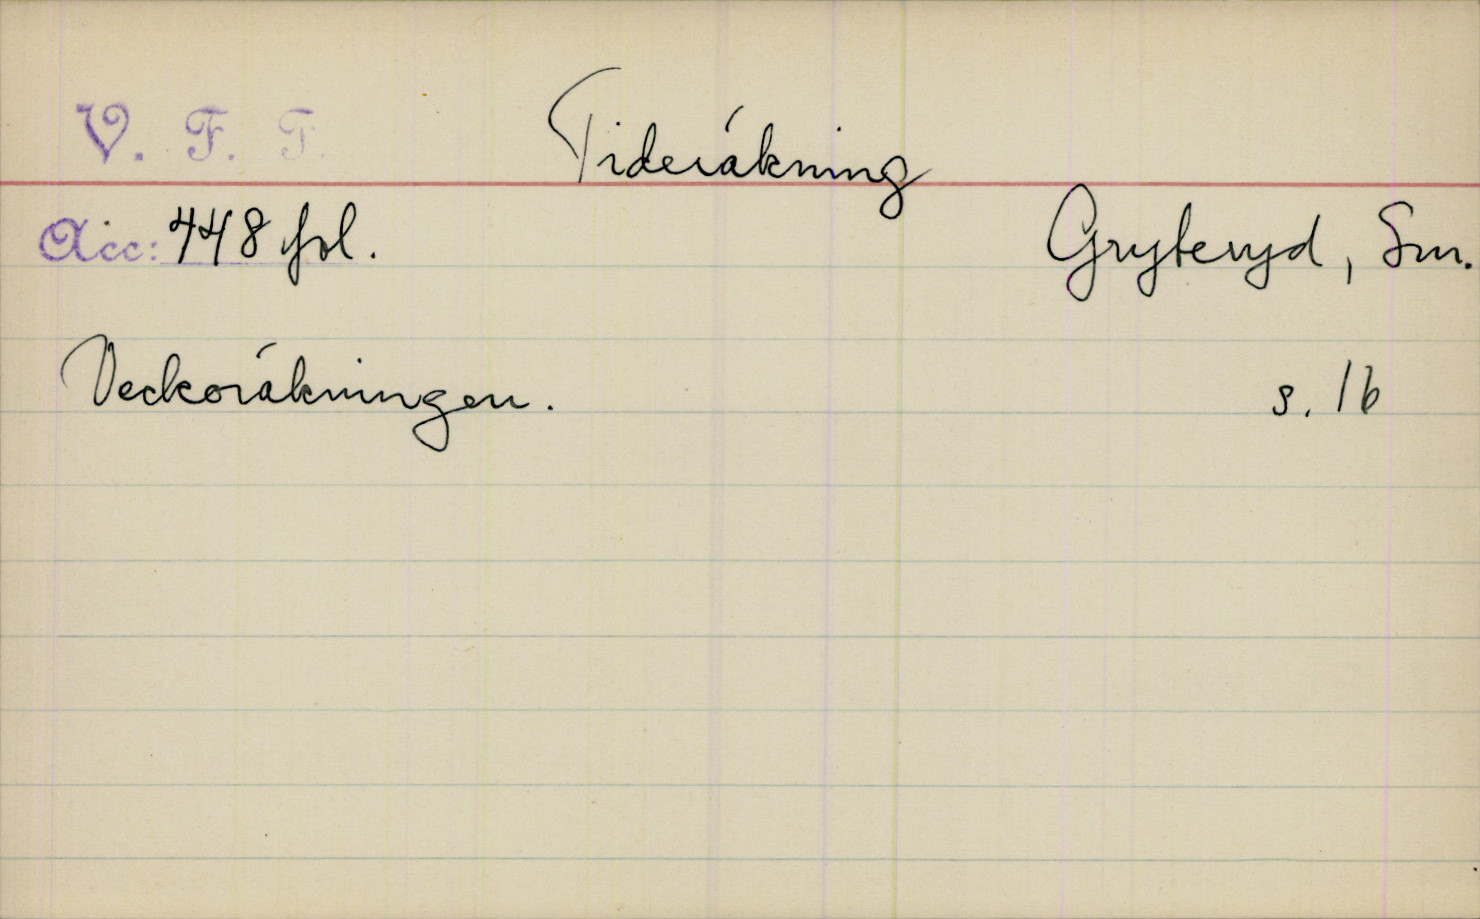 V. F. F.
Tideräkning
Acc: 448 fol.
Gryteryd, Sm.
Veckoräkningen.
s. 16